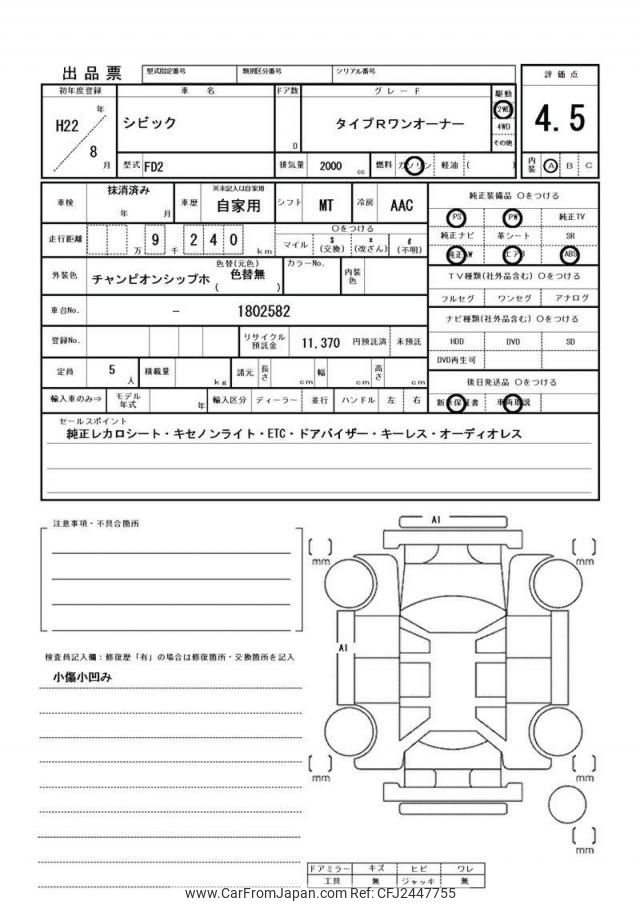 出品票 型式指定番号 類別区分番号 シリアル番号 評価点
初年度登録 車名 ドア数 グレード 駆動
H22 年 8 月 シビック D タイプRワンオーナー 2WD 4.5
4WD
その他
型式 FD2 排気量 2000 cc 燃料 ガソリン 軽油 ( ) 内装 A B C
車検 抹消済み 年 月 車歴 ※未記入は自家用 自家用 シフト MT 冷房 AAC 純正装備品 ○をつける
PS PW 純正TV
走行距離 万 9 千 2 4 0 km ○をつける
マイル $(交換) x(改ざん) #(不明) 純正ナビ 革シート SR
純正AW エアB ABS
外装色 チャンピオンシップホ 色替(元色) 色替無 ( ) カラーNo. 内装色 TV種類(社外品含む) ○をつける
フルセグ ワンセグ アナログ
車台No. − 1802582 ナビ種類(社外品含む) ○をつける
登録No. リサイクル預託金 11,370 円預託済 未預託 HDD DVD SD
DVD再生可
定員 5 人 積載量 kg 諸元 長さ cm 幅 cm 高さ cm 後日発送品 ○をつける
輸入車のみ⇒ モデル年式 年 輸入区分 ディーラー 並行 ハンドル 左 右 新車保証書 車両取説
セールスポイント
純正レカロシート・キセノンライト・ETC・ドアバイザー・キーレス・オーディオレス
注意事項・不具合箇所
A1
mm mm
検査員記入欄:修復歴「有」の場合は修復箇所・交換箇所を記入
A1
小傷小凹み
mm mm
mm
ドアミラー キズ ヒビ ワレ
工具 無 ジャッキ 無
www.CarFromJapan.com Ref: CFJ2447755